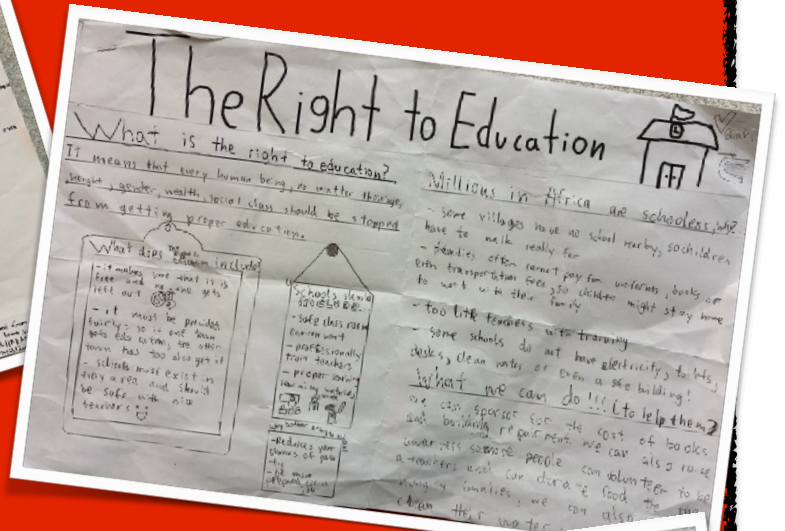 The Right to Education
What is the right to education?
It means that every human being, no matter their age,
height, gender, wealth, social class should be stopped
from getting proper education.
What does include?
- it makes sure that it is
free and no one gets
left out
- it must be provided
fairly; so if one town
gets education, the other
town has too also get it
- schools must exist in
every area and should
be safe with nice
teachers
Schools should
- safe class room
environment
- professionally
train teachers
- proper learning
- Reduces your
chances of
- be more
prepared
job
Millions in Africa are schooless, why?
- some villages have no school nearby, so children
have to walk really far
- families often cannot pay for uniforms, books or
even transportation fees, so children might stay home
to work with their family
- too little teachers with training
- some schools do not have electricity, toilets,
desks, clean water or even a safe building!
What we can do!!! (to help them)
we can sponser for the cost of books
and building repairment, we can also raise
awareness some people can volunteer to be
a teacher, and can donate food to the
hungry families, we can also
clean their water